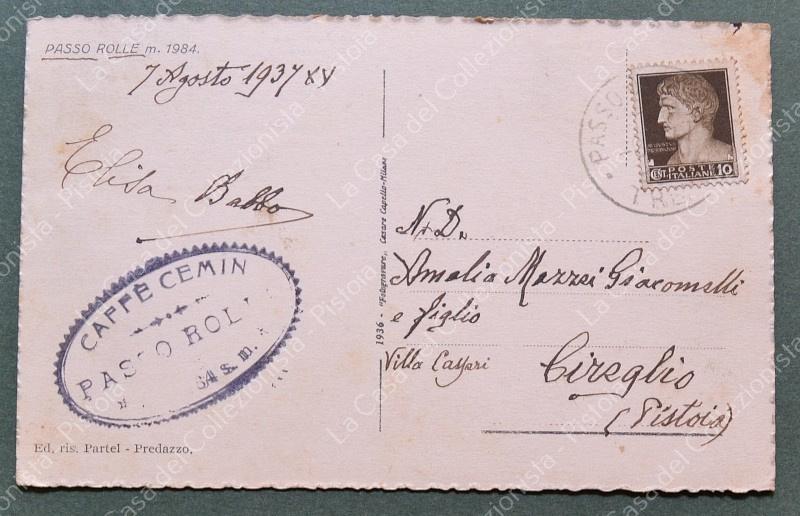 PASSO ROLLE m. 1984.
7 Agosto 1937 XV
Elisa Babbo
CAFFÈ CEMIN
PASSO ROLL
84 s. m.
Ed. ris. Partel - Predazzo.
1936 - "Fotogravure" Cesare Capello-Milano
PASSO
TRE
POSTE
CENT. ITALIANE 10
N. D.
Amalia Mazzei Giacomelli
e figlio
Villa
Cireglio
(Pistoia)
La Casa del Collezionista - Pistoia